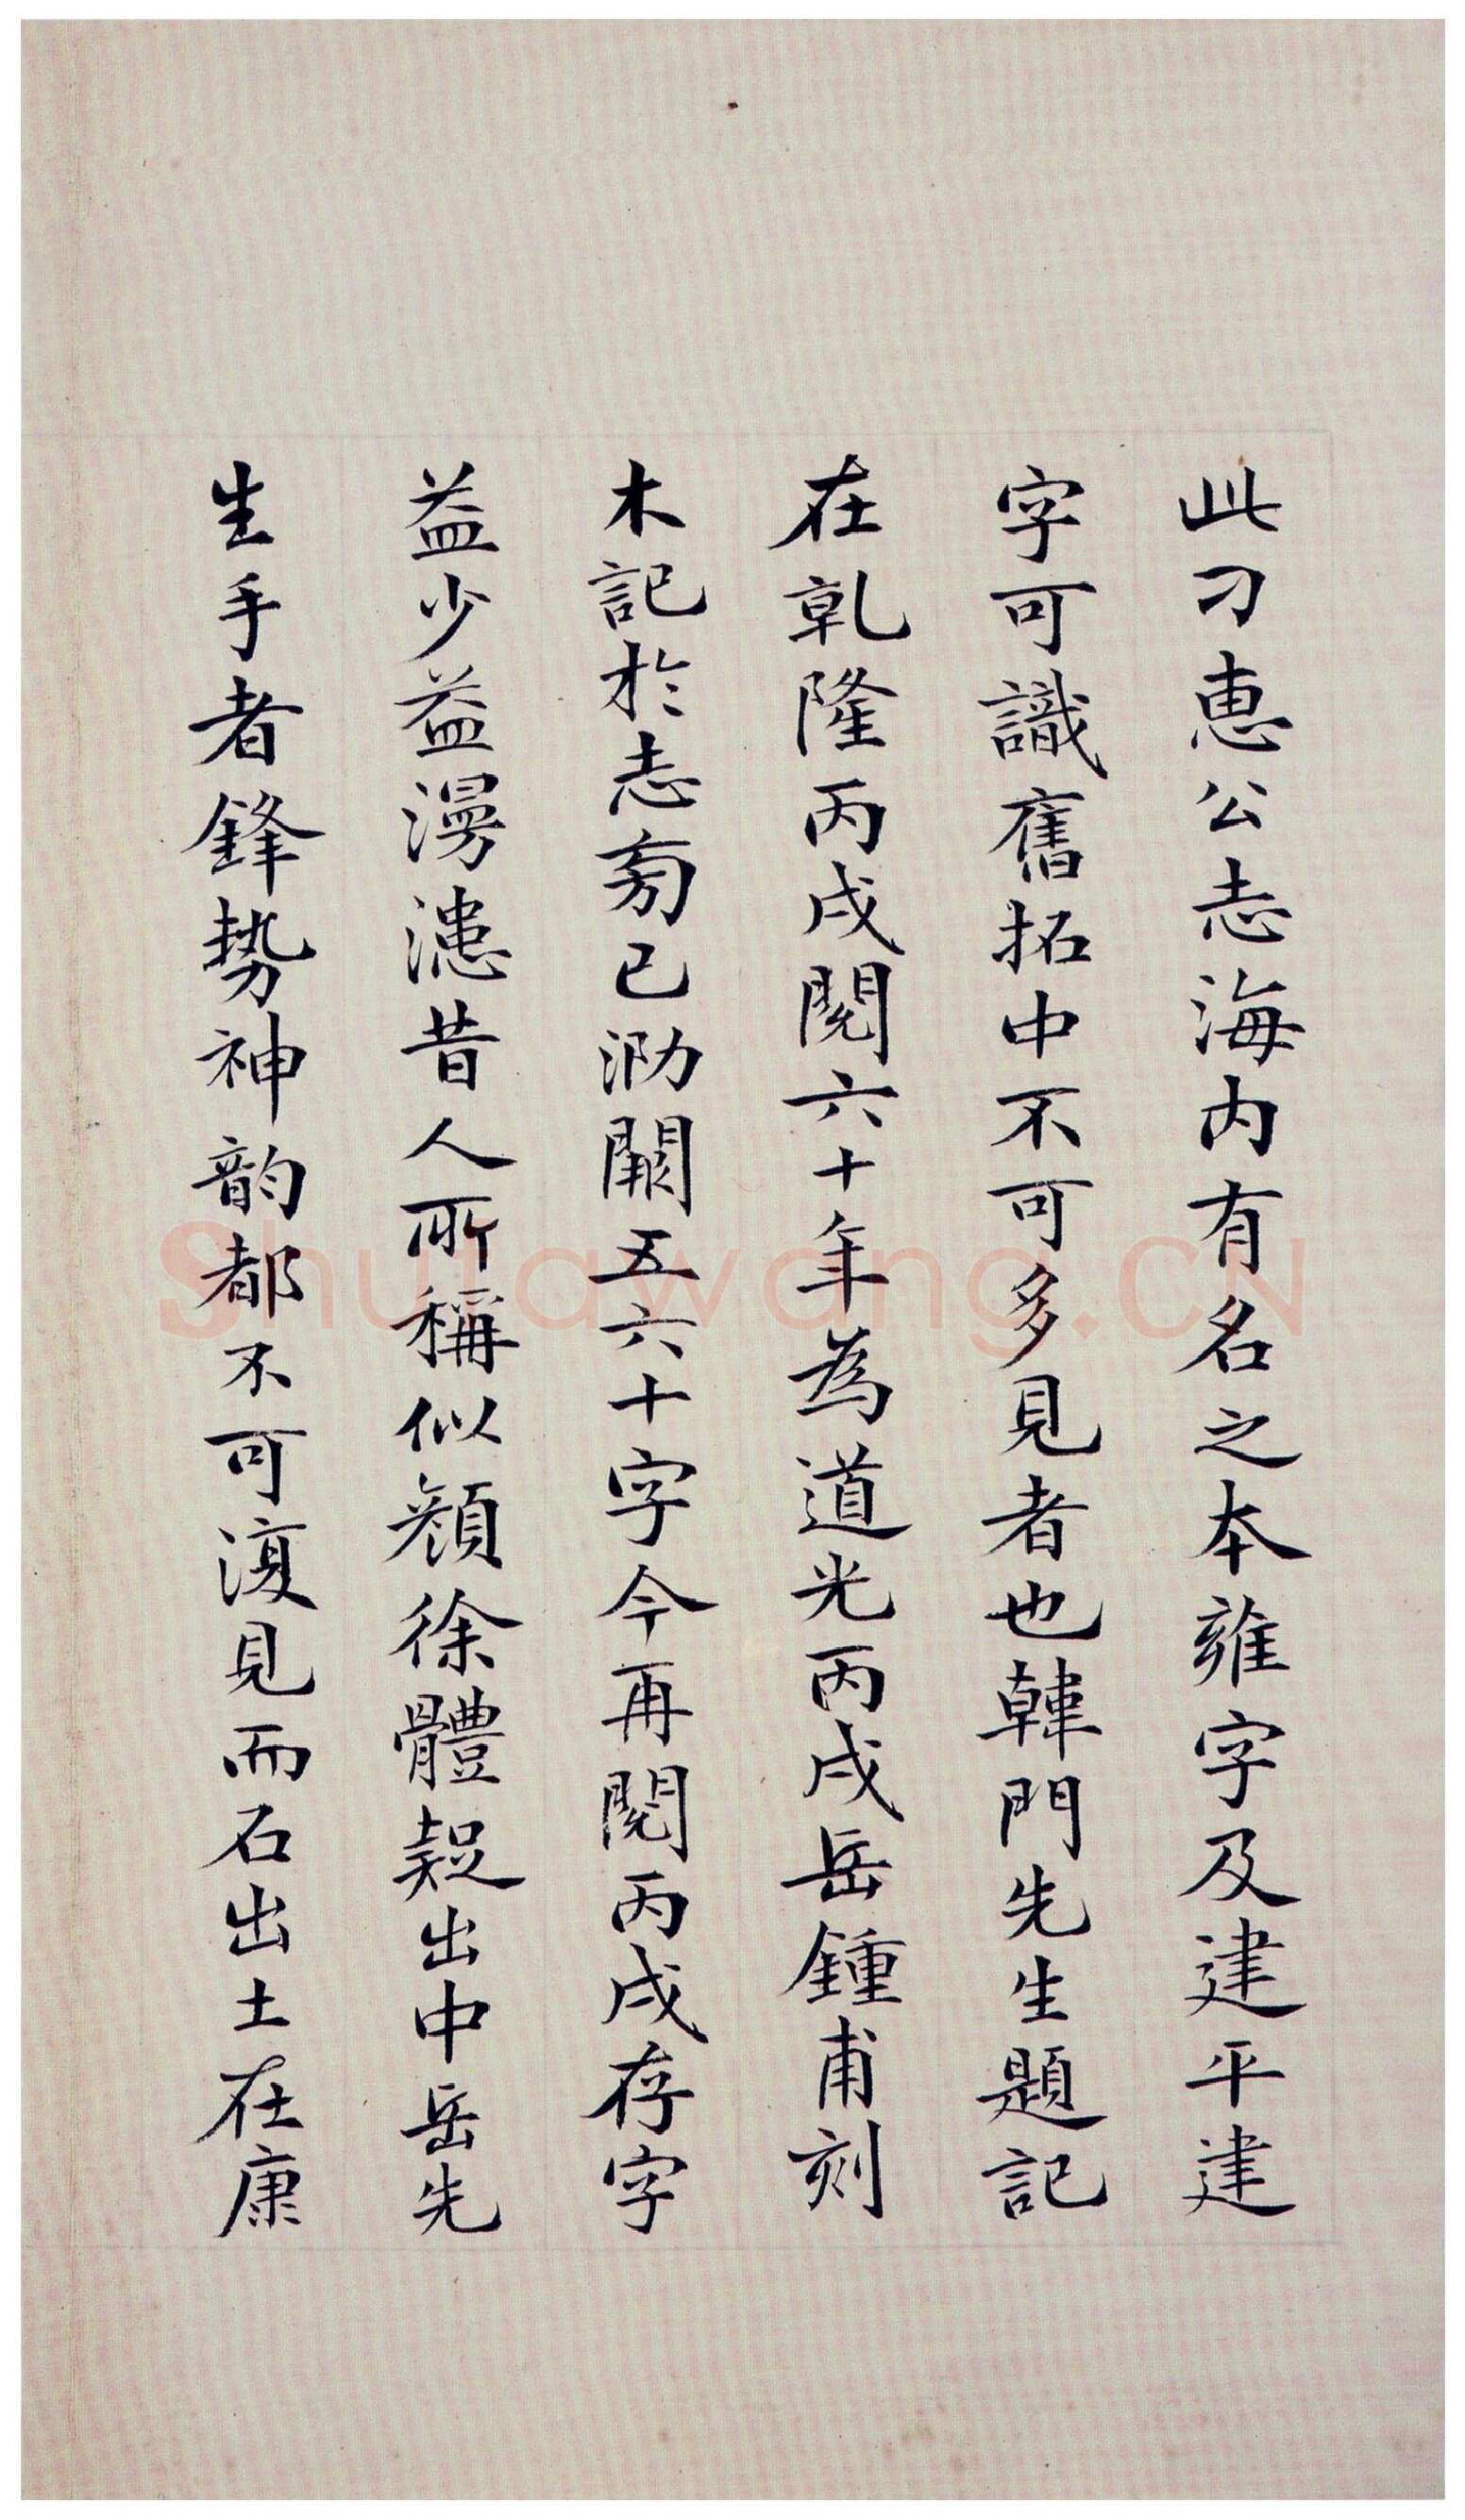 此刁惠公志海内有名之本雍字及建平建
字可識舊拓中不可多見者也韓門先生題記
在乹隆丙戌閱六十年為道光丙戌岳鍾甫刻
木記於志旁已泐闕五六十字今再閱丙戌存字
益少益漫漶昔人所稱似顏徐體疑出中岳先
生手者鋒勢神韵都不可復見而石出土在康
Shufawang.CN